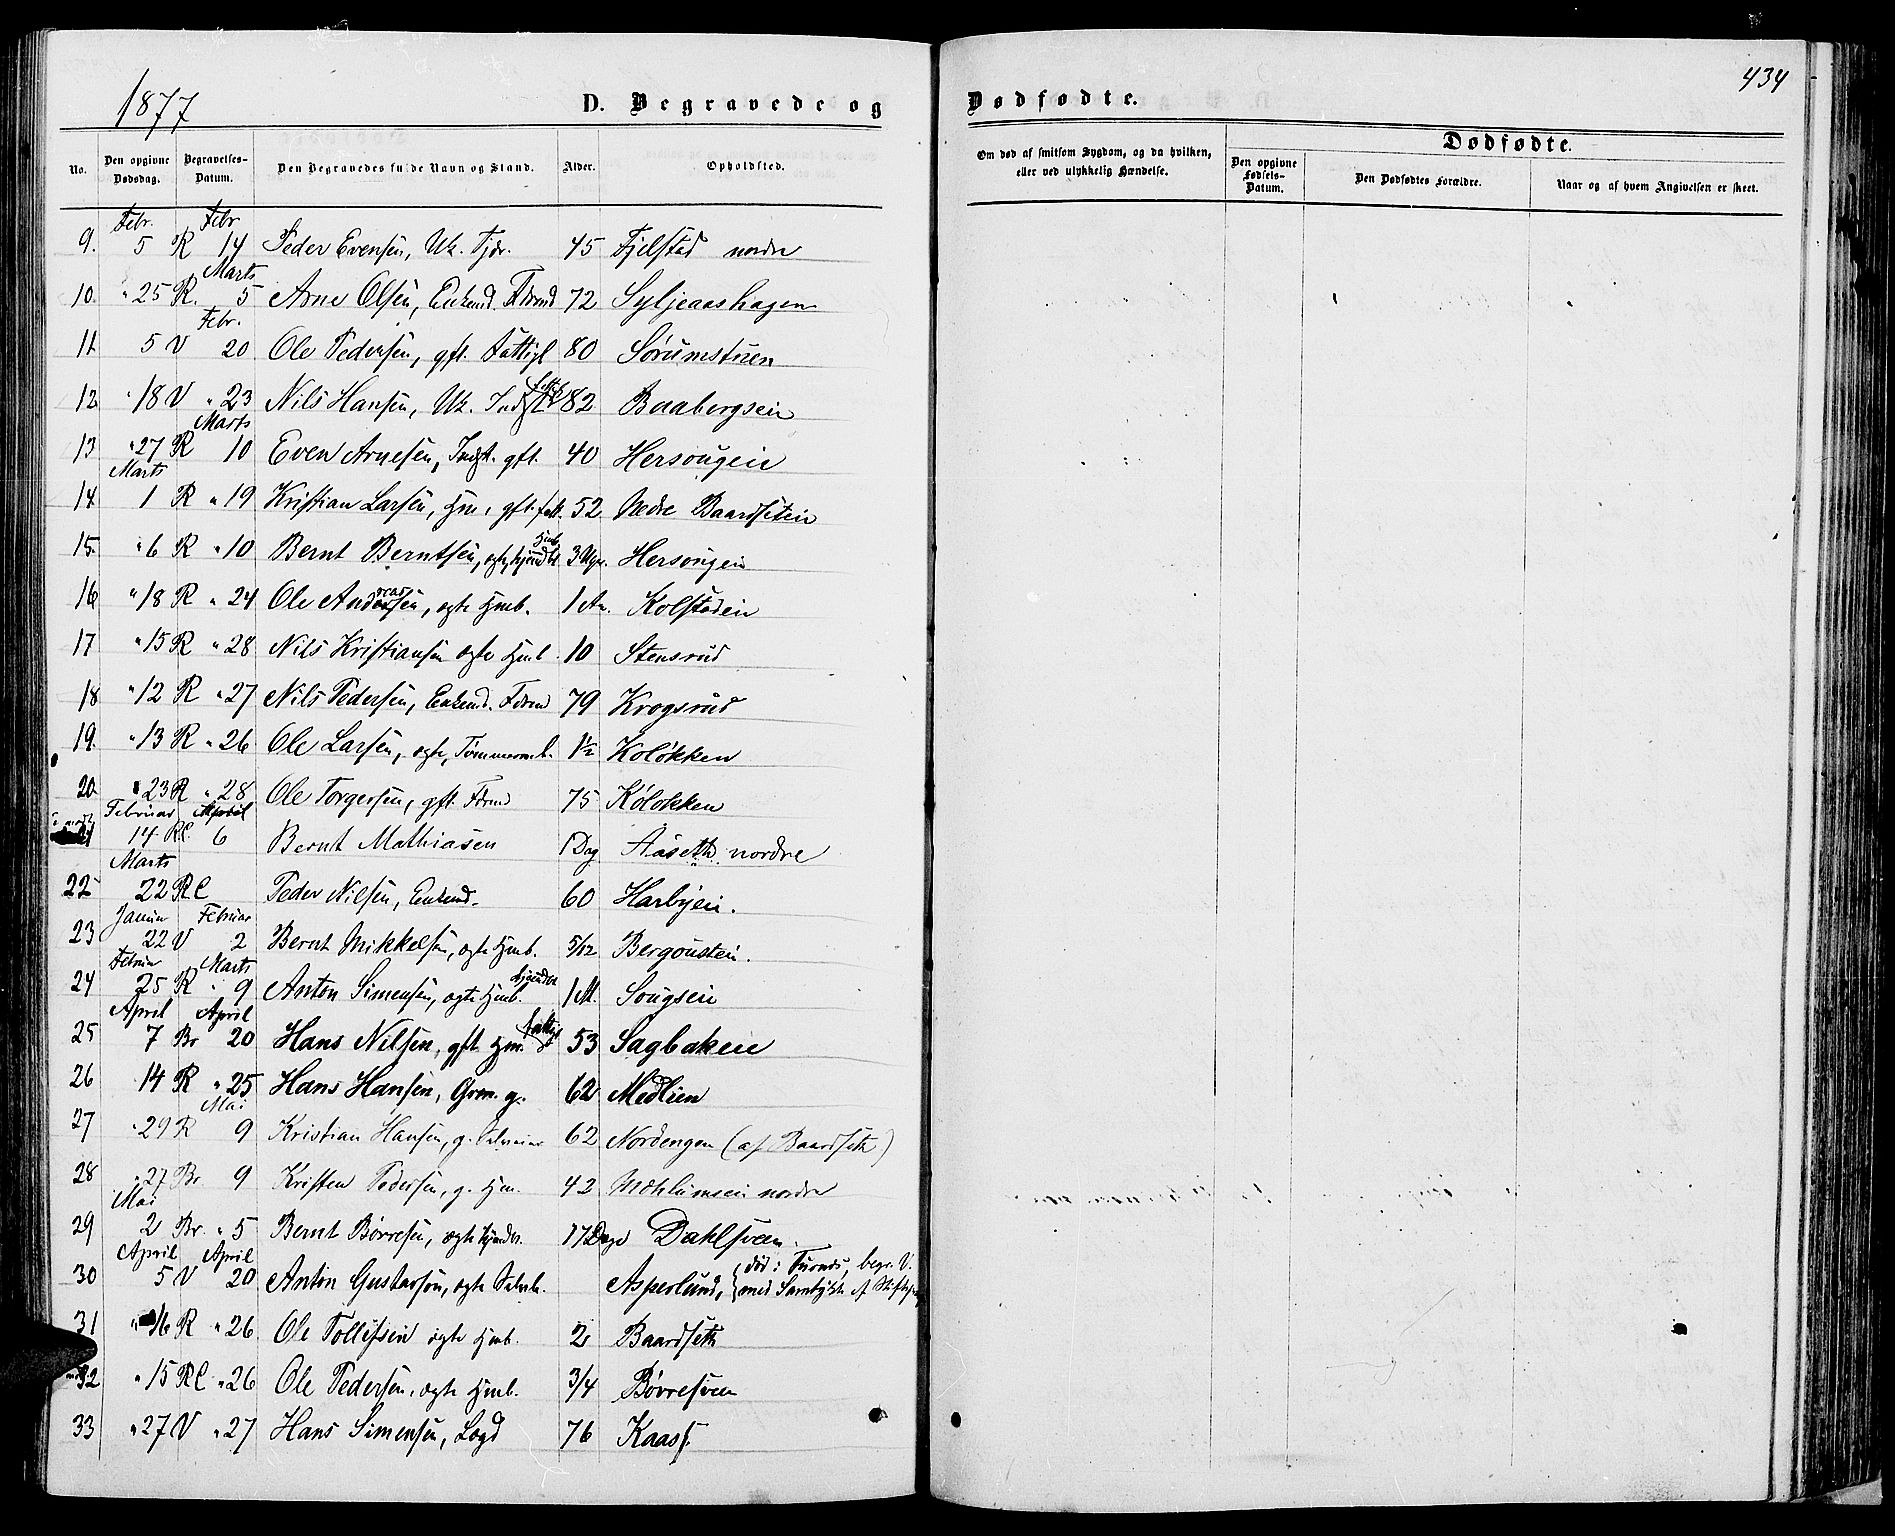 1877
D. Begravede og Dødfødte.
434
No. Den opgivne Dødsdag. Begravelses-Datum. Den Begravedes fulde Navn og Stand. Alder. Opholdsted.
Om død af smitsom Sygdom, og da hvilken, eller ved ulykkelig Hændelse.
Dødfødte.
Den opgivne Fødsels-Datum. Den Dødfødtes Forældre. Naar og af hvem Angivelsen er skeet.
Febr. Febr
9. 5 R 14 Peder Evensen, Uk. Tjdr. 45 Fjelstad nordre
Marts
10. " 25 R. 5 Arne Olsen, Enkemd. Fdrmd 72 Syljeaashagen
Febr.
11 5 V 20 Ole Pedersen, gft. Fattigl 80 Sørumstuen
12 " 18 V " 23 Nils Hansen, Uk. Indst. 82 Baabergseie
Marts
13 " 27 R 10 Even Arnesen, Indst. gft. 40 Hersougeie
Marts
14 1 R " 19 Kristian Larsen, Hm, gft. fatt. 52 Nedre Baardseteie
15. " 6 R " 10 Bernt Berntsen, ægte, hjmdbt Hmb. 3 Uger. Hersougeie
16 " 18 R " 24 Ole Andreassen, ægte Hmb. 1 Aar. Kolstadeie
17 " 15 R " 28 Nils Kristiansen ægte Hmb. 10 Stensrud
18 " 12 R " 27 Nils Pedersen, Enkemd. Fdrmd 79 Krogsrud
19. " 13 R " 26 Ole Larsen, ægte, Tømmermb. 1½ Koløkken
20 " 23 R " 28 Ole Torgersen, gft. Fdrmd 75 Koløkken
Februar April
21 14 R.C. 6 Bernt Mathiasen 1 Dag Aaseth nordre
Marts
22 22 R C Peder Nilsen, Enkemd. 60 Harbyeie.
Januar Februar
23 22 V 2 Bernt Mikkelsen, ægte Hmb. 5/12 Bergousteie.
Februar Marts
24 25 R " 9 Anton Simensen, ægte Hmb. hjemdbt 1 M. Sougseie
April April
25 7 Br 20 Hans Nilsen, gft. Hm. fattigl 53 Sagbakeie
26 14 R " 25 Hans Hansen, Grm. g. 62 Medlien
Mai
27 " 29 R 9 Kristian Hansen, g. Selveier 62 Nordengen (af Baardseth)
28 " 27 Br 9 Kristen Pedersen, g. Hm. 42 Mæhlumseie nordre
Mai
29 2 Br. " 5 Bernt Børresen, ægte hjemdbt. 17 Dage Dahlsveen.
April April
30 5 V 20 Anton Gustavsen, ægte Selveb. Asperlund, { død i Furnes, begr. V. med Samtykke af Stiftspr
31 " 16 R " 26 Ole Tollefsen ægte Hmb. 2 Baardseth
32 " 15 R C " 26 Ole Pedersen, ægte Hmb. 3/4 Børresveen
33 " 27 V " 27 Hans Simensen, Lægd 76 Kaass.